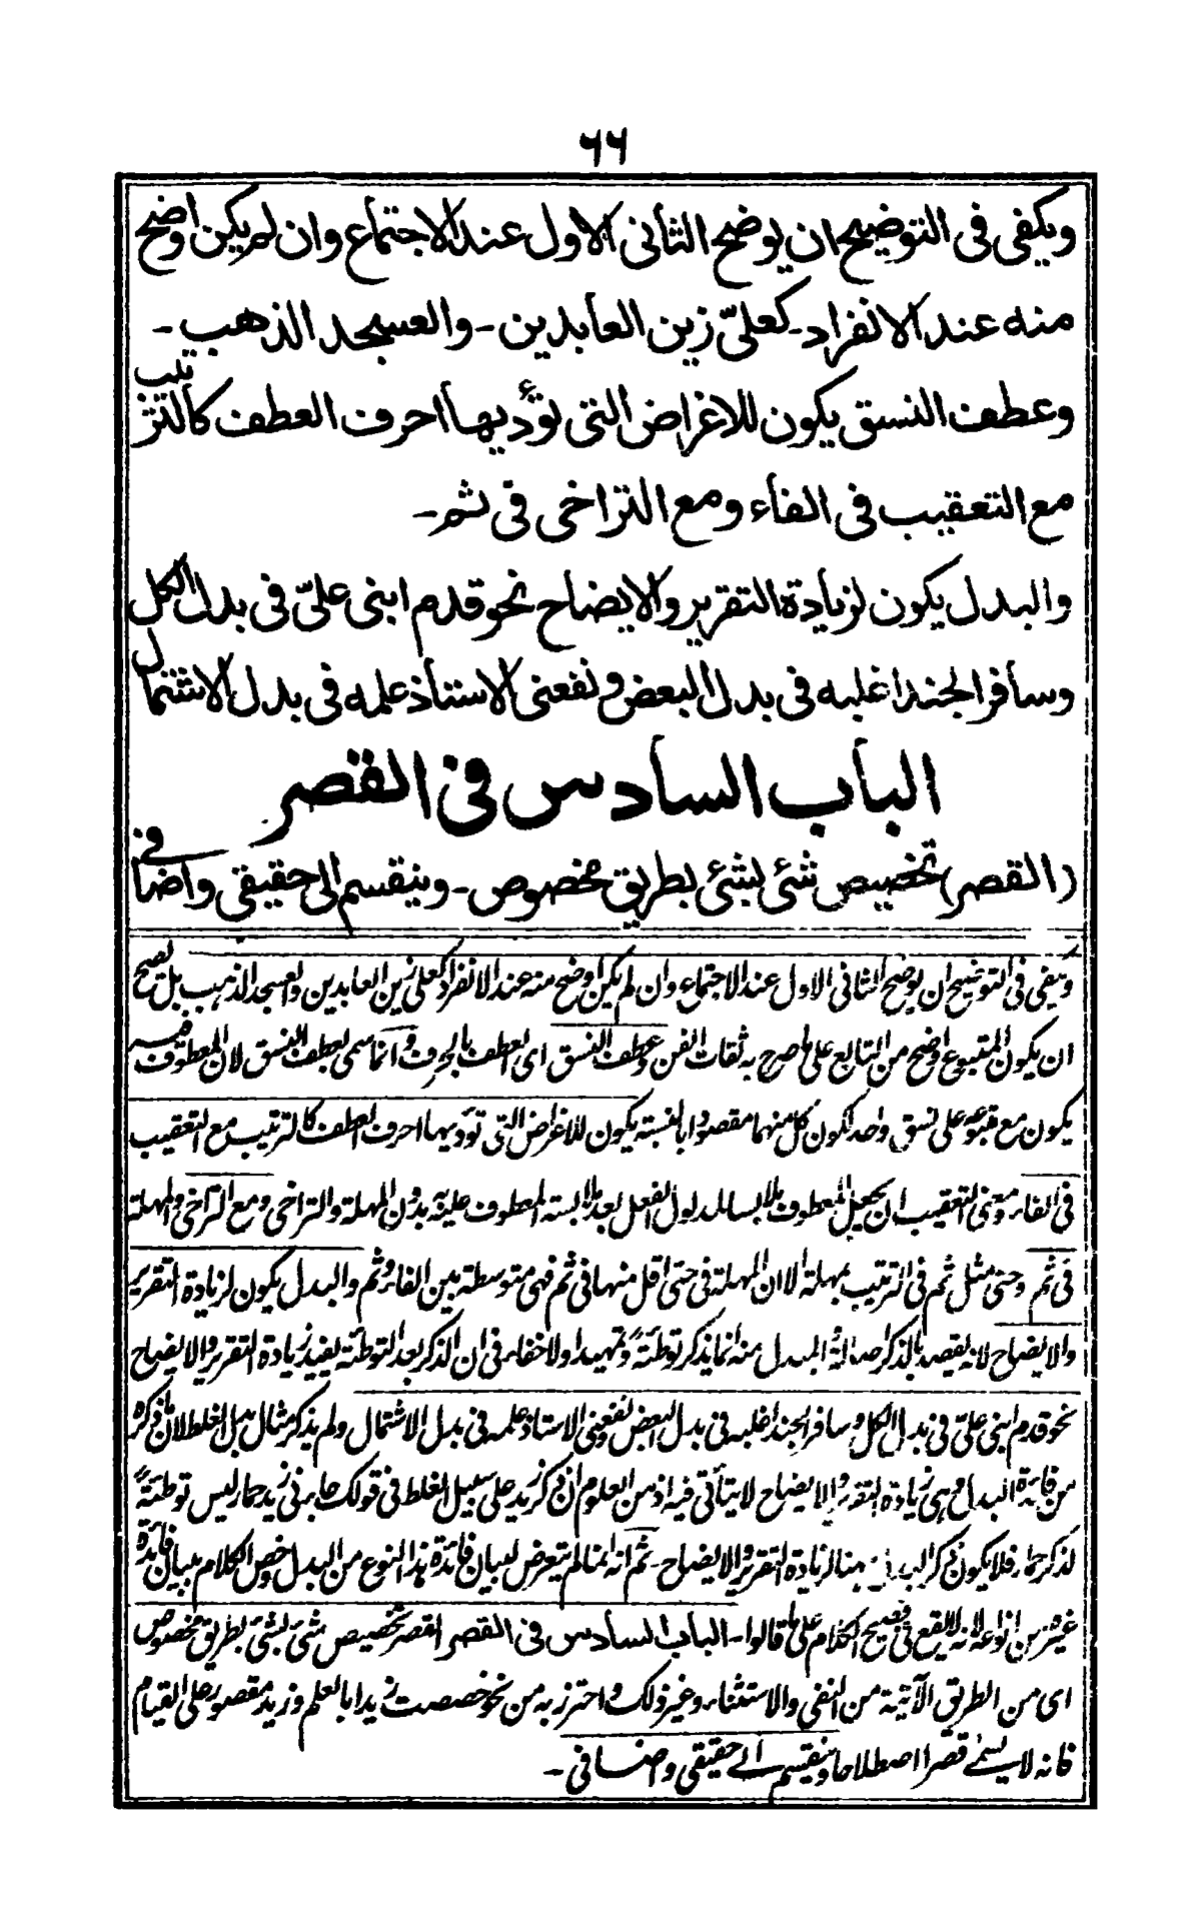 ٦٦
ويكفى فى التوضيح ان يوضح الثانى الاول عند الاجتماع وان لم يكن اوضح
منه عند الانفراد۔ كعلىّ زين العابدين ۔ والعسجد الذهب ۔
وعطف النسق يكون للاغراض التى تؤديها احرف العطف كالترتيب
مع التعقيب فى الفاء ومع التراخى فى ثم ۔
والبدل يكون لزيادة التقرير والايضاح نحو قدم ابنى علىّ فى بدل الكل
وسافر الجند اغلبه فى بدل البعض ونفعنى الاستاذ علمه فى بدل الاشتمال
الباب السادس فى القصر
(القصر) تخصيص شئ بشئ بطريق مخصوص ۔ وينقسم الى حقيقى واضافى
ويكفى فى التوضيح ان يوضح الثانى الاول عند الاجتماع وان لم يكن اوضح منه عند الانفراد كعلى زين العابدين والعسجد الذهب بل يصح
ان يكون المتبوع اوضح من التابع على ما صرح به ثقات الفن وعطف النسق اى العطف بالحرف وانما سمى بعطف النسق لان المعطوف فيه
يكون مع متبوعه على نسق واحد لكون كل منهما مقصودا بالنسبة يكون للاغراض التى تؤديها احرف العطف كالترتيب مع التعقيب
فى الفاء ومعنى التعقيب ان يجعل المعطوف ملابسا لمدلول الفعل بعد ملابسته المعطوف عليه بدون المهلة والتراخى ومع التراخى والمهلة
فى ثم وحتى مثل ثم فى الترتيب بمهلة الا ان المهلة فى حتى اقل منها فى ثم فهى متوسطة بين الفاء وثم والبدل يكون لزيادة التقرير
والايضاح لانه يقصد بالذكر اصالة والمبدل منه انما يذكر توطئة وتمهيدا ولا خفاء فى ان الذكر بعد التوطئة يفيد زيادة التقرير والايضاح
نحو قدم ابنى علىّ فى بدل الكل وسافر الجند اغلبه فى بدل البعض ونفعنى الاستاذ علمه فى بدل الاشتمال ولم يذكر مثال بدل الغلط لان ما ذكره
من فائدة البدل وهى زيادة التقرير والايضاح لا يتأتى فيه اذ من المعلوم ان ذكر زيد على سبيل الغلط فى قولك جاءنى زيد حمار ليس توطئة
لذكر حمار فلا يكون ذكر هنا لزيادة التقرير والايضاح ۔ ثم انه انما لم يتعرض لبيان فائدة هذا النوع من البدل وخص الكلام ببيان فائدة
غيره من انواعه لانه لا يقع فى فصيح الكلام على ما قالوا ۔ الباب السادس فى القصر القصر تخصيص شئ بشئ بطريق مخصوص
اى من الطرق الآتية من النفى والاستثناء وغير ذلك واحترز به من نحو خصصت زيدا بالعلم وزيد مقصور على القيام
فانه لا يسمى قصرا اصطلاحا وينقسم الے حقيقى واضافى ۔